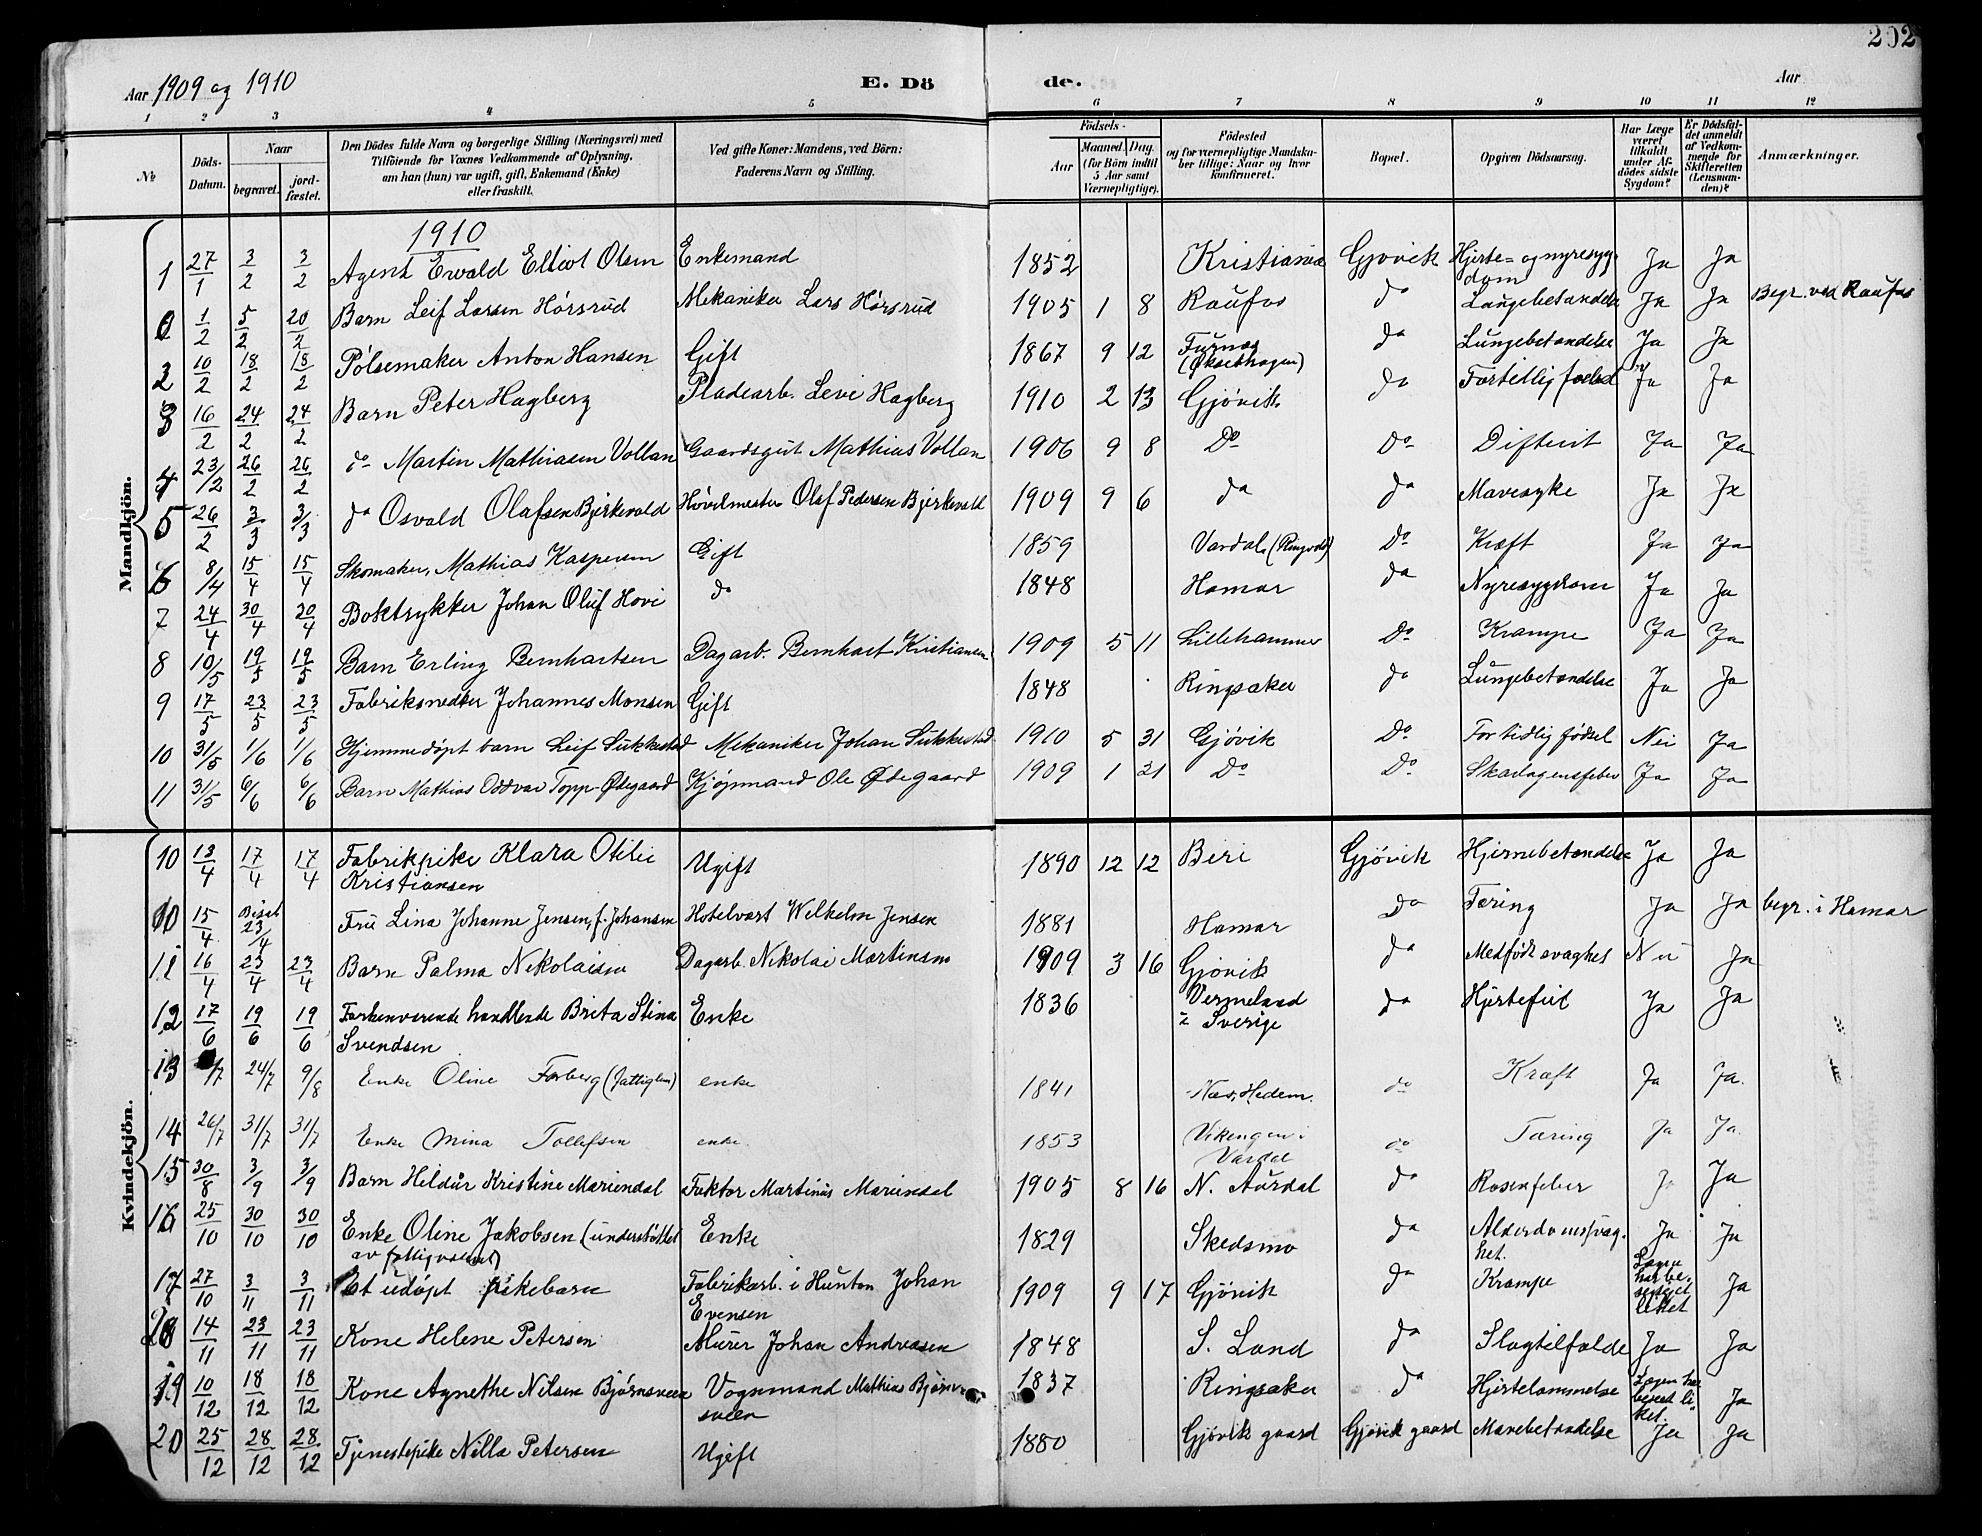 202
Aar 1909 og 1910 E. Dö de. Aar
1 2 3 4 5 6 7 8 9 10 11 12
№ Döds-Datum. Naar begravet. jord-fæstet. Den Dödes fulde Navn og borgerlige Stilling (Næringsvei) med Tilföiende for Voxnes Vedkommende af Oplysning, om han (hun) var ugift, gift, Enkemand (Enke) eller fraskilt. Ved gifte Koner: Mandens, ved Börn: Faderens Navn og Stilling. Födsels- Aar Maaned. Dag. (for Börn indtil 5 Aar samt Værnepligtige). Födested og for værnepligtige Mandskaber tillige: Naar og hvor konfirmeret. Bopæl. Opgiven Dödsaarsag. Har Læge været tilkaldt under Afdödes sidste Sygdom? Er Dödsfaldet anmeldt af Vedkommende for Skifteretten (Lensmanden)? Anmærkninger.
Mandkjön.
1910
1 27/1 3/2 3/2 Agent Ervald Elliot Olsen Enkemand 1852 Kristiania Gjøvik Hjerte- og nyresygdom Ja Ja
1/2 5/2 20/2 Barn Leif Larsen Hørsrud Mekaniker Lars Hørsrud 1905 1 8 Raufos do Lungebetændelse Ja Ja Begr. ved Raufos
2 10/2 18/2 18/2 Pølsemaker Anton Hansen Gift 1867 9 12 Furnes (Øksethagen) do Lungebetændelse Ja Ja
3 16/2 24/2 24/2 Barn Peter Hagberg Pladearb. Levi Hagberg 1910 2 13 Gjøvik do Fortidlig fødsel Ja Ja
4 23/2 26/2 26/2 do Martin Mathiasen Vollan Gaardsgut Mathias Vollan 1906 9 8 Do Do Difterit Ja Ja
5 26/2 3/3 3/3 do Osvald Olafsen Bjerkevold Høvelmester Olaf Pedersen Bjerkevold 1909 9 6 da da Mavesyke Ja Ja
6 8/4 15/4 15/4 Skomaker, Mathias Kaspersen Gift 1859 Vardal (Ringvold) Do Kræft Ja Ja
7 24/4 30/4 30/4 Boktrykker Johan Oluf Hovi do 1848 Hamar da Nyresygdom Ja Ja
8 10/5 19/5 19/5 Barn Erling Bernhartsen Dagarb. Bernhart Kristiansen 1909 5 11 Lillehammer Do Krampe Ja Ja
9 17/5 23/5 23/5 Fabriksnedker Johannes Monsen Gift 1848 Ringsaker do Lungebetændelse Ja Ja
10 31/5 1/6 1/6 Hjemmedøpt barn Leif Sukkestad Mekaniker Johan Sukkestad 1910 5 31 Gjøvik Do Fortidlig fødsel Nei Ja
11 31/5 6/6 6/6 Barn Mathias Oddvar Topp-Ødegaard Kjøpmand Ole Ødegaard 1909 1 21 Do Do Skarlagensfeber Ja Ja
Kvindekjön.
10 13/4 17/4 17/4 Fabrikpike Klara Otilie Kristiansen Ugift 1890 12 12 Beri Gjøvik Hjernebetændelse Ja Ja
10 15/4 Bisat 23/4 Fru Lina Johanne Jensen, f. Johansen Hotelvært Wilhelm Jensen 1881 Hamar do Tæring Ja Ja begr. i Hamar
11 16/4 23/4 23/4 Barn Palma Nikolaisen Dagarb. Nikolai Martinsen 1909 3 16 Gjøvik da Medfødt svaghet Nei Ja
12 17/6 19/6 19/6 Forhenværende handlende Brita Stina Svendsen Enke 1836 Vermeland i Sverige do Hjertefeil Ja Ja
13 /7 24/7 9/8 Enke Oline Forberg (fattiglem) enke 1841 Næs, Hedem. do Kræft Ja Ja.
14 26/7 31/7 31/7 Enke Mina Tollefsen enke. 1853 Vikengen i Vardal do Tæring Ja Ja.
15 30/8 3/9 3/9 Barn Heldur Kristine Mariendal Faktor Martinus Mariendal 1905 8 16 N. Aurdal do Rosenfeber Ja Ja
16 25/10 30/10 30/10 Enke Oline Jakobsen (understøttet av fattigvæsenet) Enke 1829 Skedsmo da Alderdomssvaghet. Ja Ja
17 27/10 3/11 3/11 Et udøpt pikebarn Fabrikarb. i Hunton Johan Evensen 1909 9 17 Gjøvik da Krampe Lægen har besigtiget liket Ja
18 14/11 23/11 23/11 Kone Helene Petersen Murer Johan Andreasen 1848 S. Land da Slagtilfælde Ja Ja
19 10/12 18/12 18/12 Kone Agnethe Nilsen Bjørnsveen Vognmand Mathias Bjørnsveen 1837 Ringsaker da Hjertelammelse Lægen har beset liket. Ja
20 25/12 28/12 28/12 Tjenestepike Nilla Petersen Ugift 1880 Gjøvik gaard Gjøvik gaard Mavebetændelse Ja Ja